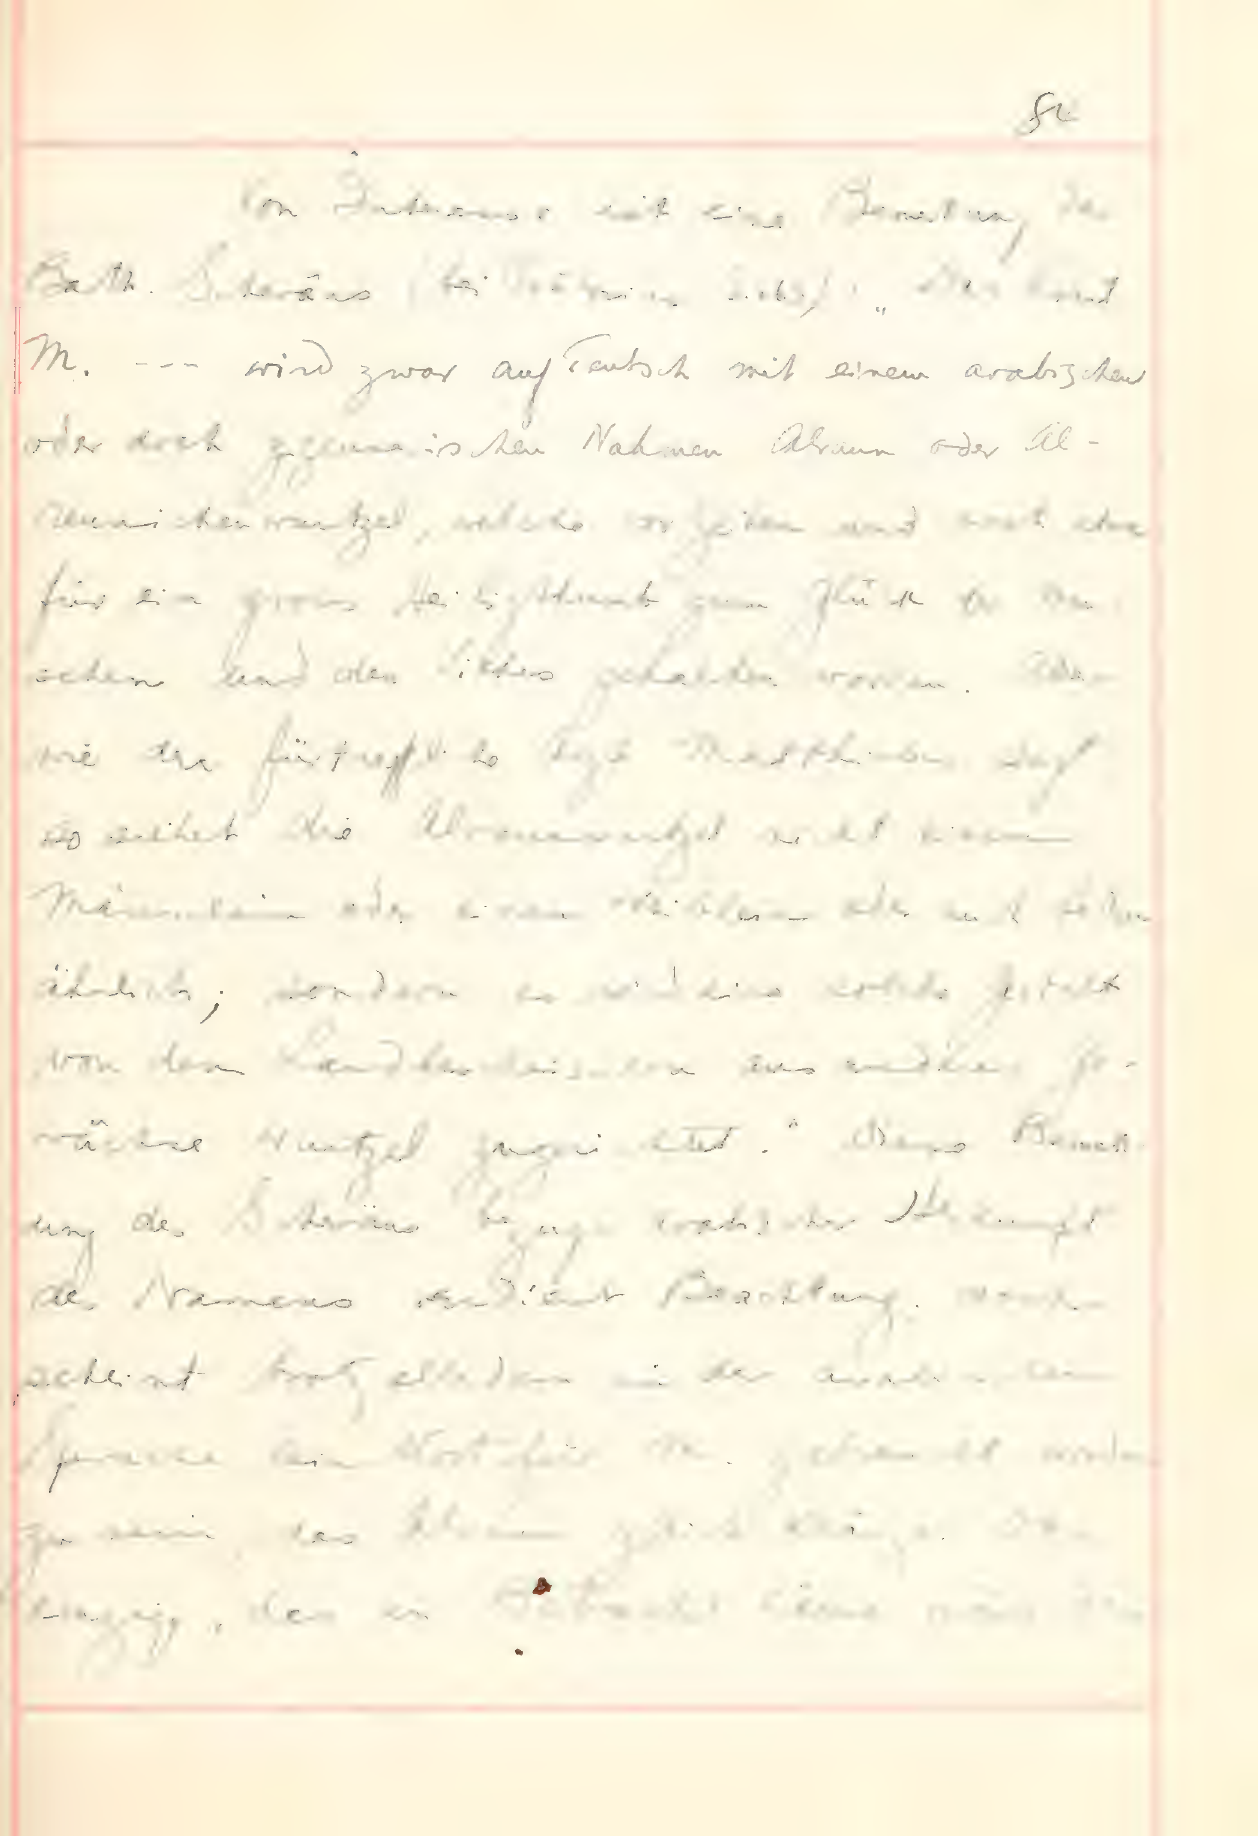 82
Von Interesse ist eine Bemerkung des
Barth. Scheräus (bei „Das Kraut
M. --- wird zwar auf Teutsch mit einem arabischen
oder doch zygeunerischen Nahmen Alraun oder Al-
reunichenwurtzel, welche vorzeiten und noch etwa
für ein gross Heiligthumb zum Glück zu
und der Liebes gehalten worden. Aber
wie der fürtreffliche Matthiolus sagt
so siehet die Alraunwurtzel nicht einem
Männlein oder einem Weiblein oder
ähnlich; sondern es wird eine solche Gestalt
von den Landbescheissern aus anderer Ge-
wächse Wurtzel zugerichtet.“ Diese Bemerk-
ung des Scheräus bezügl. arabischer Herkunft
des Namens verdient Beachtung.
scheint trotz alledem in der arabischen
Sprache kein Wort für M. gebraucht worden
zu sein, das Alraun gleich klänge. Das
einzige, das in Betracht käme wäre